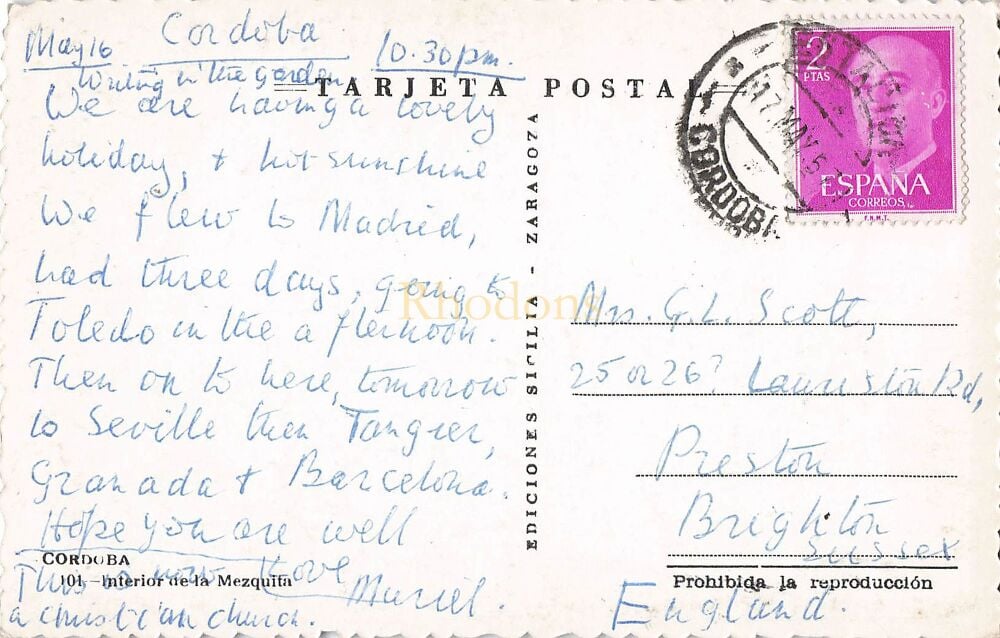 May 16 Cordoba 10.30pm.
Writing in the garden
TARJETA POSTAL
We are having a lovely
holiday, + hot sunshine
We flew to Madrid,
had three days, going to
Toledo in the afternoon.
Then on to here, tomorrow
to Seville then Tangier,
Granada + Barcelona.
Hope you are well
love
Muriel.
CORDOBA
101.-Interior de la Mezquita
This is now
a christian church.
EDICIONES SICILIA - ZARAGOZA
2
PTAS
ESPAÑA
CORREOS
F.N.M.T.
17 MAY 5
CORDOBA
Rhodons
Mrs. G. L. Scott,
25 or 26? Laureston Rd,
Preston
Brighton
Sussex
England.
Prohibida la reproducción